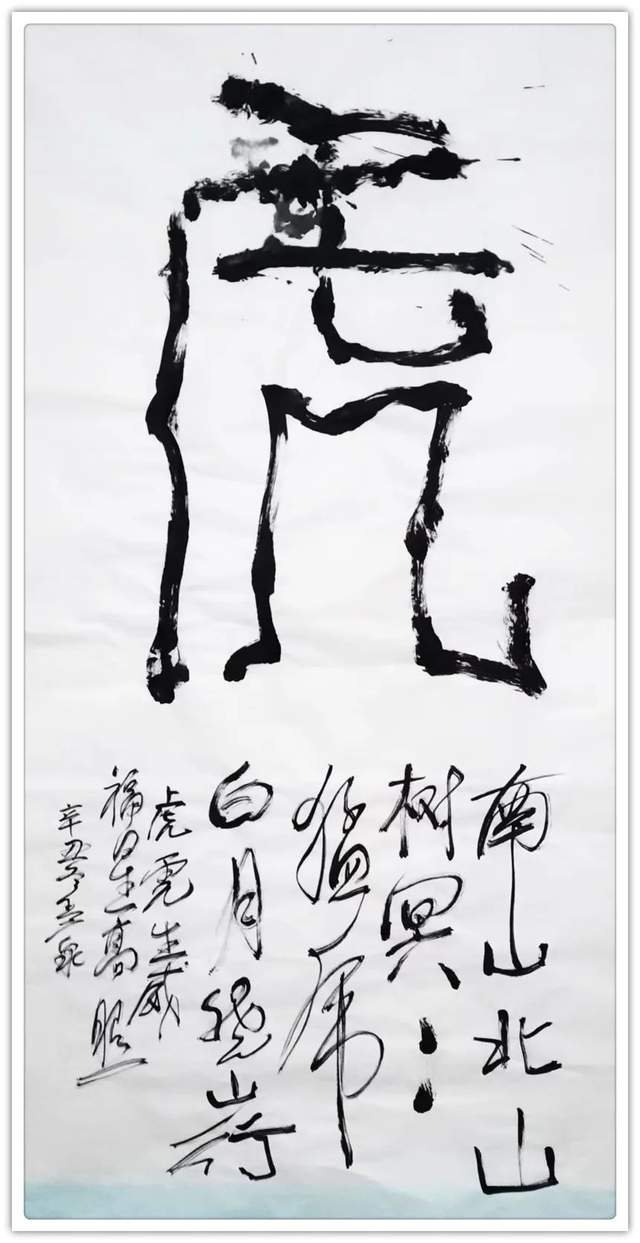 虎
南山北山
树冥〻
猛虎
白月绕山行
虎虎生威
福星高照
辛丑冬